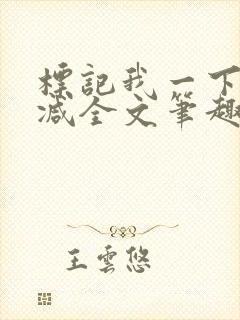 標記我一下
減全文筆趣
王雲悠